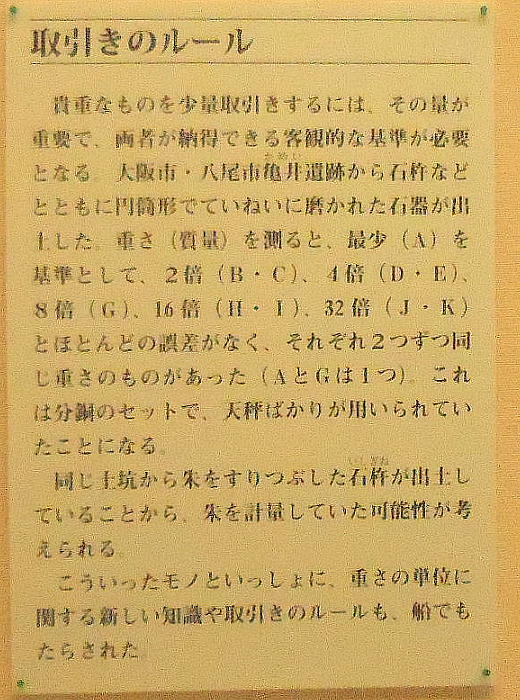 取引きのルール
貴重なものを少量取引きするには、その量が
重要で、両者が納得できる客観的な基準が必要
となる。大阪市・八尾市亀井遺跡から石杵など
とともに円筒形でていねいに磨かれた石器が出
土した。重さ（質量）を測ると、最少（A）を
基準として、2倍（B・C）、4倍（D・E）、
8倍（G）、16倍（H・I）、32倍（J・K）
とほとんどの誤差がなく、それぞれ2つずつ同
じ重さのものがあった（AとGは1つ）。これ
は分銅のセットで、天秤ばかりが用いられてい
たことになる。
同じ土坑から朱をすりつぶした石杵が出土し
ていることから、朱を計量していた可能性が考
えられる。
こういったモノといっしょに、重さの単位に
関する新しい知識や取引きのルールも、船でも
たらされた。